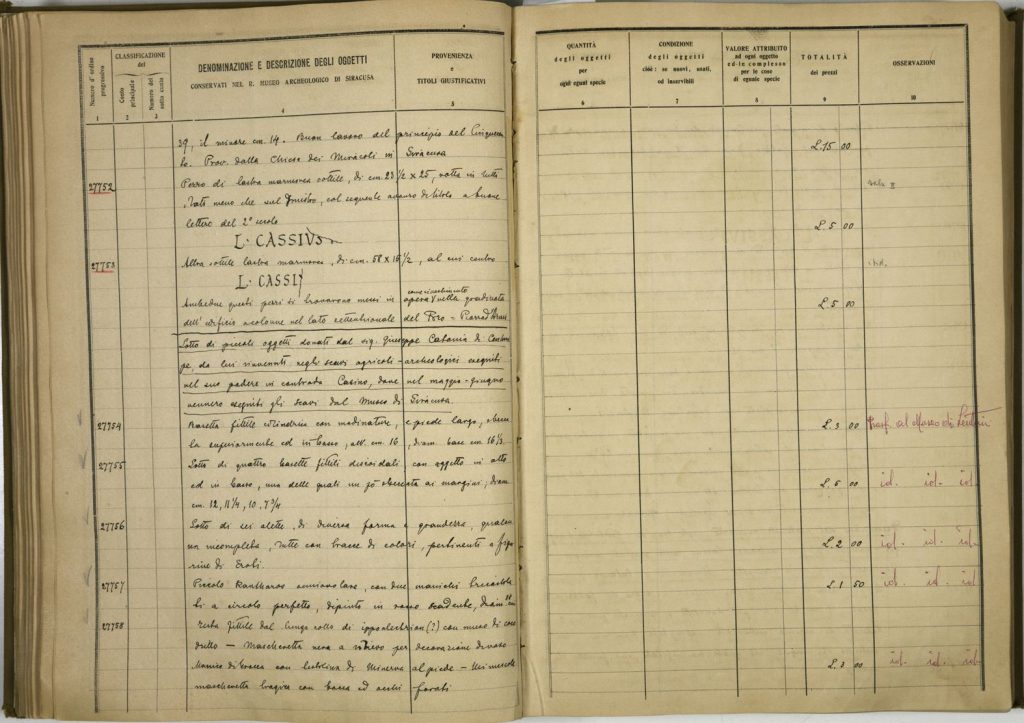 Numero d'ordine progressivo
CLASSIFICAZIONE
del
Conto principale
Numero del sotto conto
DENOMINAZIONE E DESCRIZIONE DEGLI OGGETTI
CONSERVATI NEL R. MUSEO ARCHEOLOGICO DI SIRACUSA
PROVENIENZA
e
TITOLI GIUSTIFICATIVI
1 2 3 4 5
39, il minore cm. 14. Buon lavoro del principio del Cinquecen
to. Prov. dalla Chiesa dei Miracoli in Siracusa
27752 Pezzo di lastra marmorea sottile, di cm. 23 1/2 x 25, rotta in tutti
i lati meno che sul sinistro, col seguente avanzo di titolo a buone
lettere del 2° secolo
L. CASSIVS
27753 Altra sottile lastra marmorea, di cm. 58 x 15 1/2, al cui centro
L. CASSI
come rivestimento
Ambedue questi pezzi si trovarono messi in opera nella gradinata
dell'edificio a colonne nel lato settentrionale del Foro =
Lotto di piccoli oggetti donati dal sig. Giuseppe Catania di
da lui rinvenuti negli scavi agricoli-archeologici eseguiti
nel suo podere in contrada Casino, dove nel maggio-giugno
vennero eseguiti gli scavi dal Museo di Siracusa.
27754 Basetta fittile cilindrica con modinature, e piede largo,
la superiormente ed in basso, alt. cm. 16, diam. base cm. 16 1/2
27755 Lotto di quattro basette fittili discoidali con aggetto in alto
ed in basso, una delle quali un pò sbeccata ai margini; diam.
cm. 12, 11 1/4, 10, 7 3/4
27756 Lotto di sei alette, di diversa forma e grandezza, qualcu
na incompleta, tutte con tracce di colori, pertinenti a figu
rine di Eroti.
27757 Piccolo Kantharos con due manichi
a circolo perfetto, dipinto in rosso scadente, diam.
27758 Testa fittile dal lungo collo di (?) con muso di
dritto — Mascheretta nera a rilievo per decorazione di vaso
Manico di brocca con testolina di Minerva al piede — Minuscola
mascheretta tragica con bocca ed occhi forati
QUANTITÀ
degli oggetti
per
ogni eguai specie
CONDIZIONE
degli oggetti
cioè: se nuovi, usati,
od inservibili
VALORE ATTRIBUITO
ad ogni oggetto
ed in complesso
per le cose
di eguale specie
TOTALITÀ
dei prezzi
OSSERVAZIONI
6 7 8 9 10
L. 15 00
sala II
L. 5 00
ibid.
L. 5 00
L. 3 00 Trasf. al Museo di Lentini
L. 5 00 id. id. id.
L. 2 00 id. id. id.
L. 1 50 id. id. id.
L. 3 00 id. id. id.